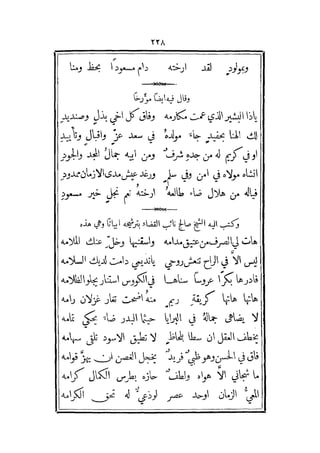 ٢٢٨
وبمولودٍ لقد ارخته دام مسعودًا بحظ ومنا
وقال فيه ايضًا مؤرخًا
ياذا البشير الذي عمت مكارمه وفاق كل اخي بذلٍ وصنديدِ
لك الهنا بحفيدٍ جاء مولدهُ في سعد عزٍّ واقبالٍ وتأييدِ
اوفي كريم له من جدهِ شرفٌ ومن ابيه جمالُ المجد والجودِ
انشاه مولاه في امنٍ وفي سلمٍ ورغد عيش مدى الازمان ممدودِ
فياله من هلال ضاء طالعهُ ارختهُ نعم نجلٍ خير مسعودِ
وكتب اليه الشيخ صالح نائب القضاء بترشيحه ابياتًا وهي هذه
هات لي الصرف من عتيق مدامه واسقنيها وخلِّ عنك الملامه
ليس الاَّ في الراح تنعش روحي يانديمي دامت لديك السلامه
فادرها بكرًا عروسًا سناهــا في الكووس استنار يجلو الظلامه
هاتها هاتها كريقةِ ريمٍ منهُ اضحت تغار غزلان رامه
لا يضاهى جمالهُ في البرايا حيثما البدر ضاء يحكي تمامه
يخطف العقل ان سطا بلحاظٍ لا تطيق الاسود تلقى سهامه
فاق في الحسن وهو ظبيٌ فريدٌ يخجل الغصن ان يهزَّ قوامه
ما شجاني الاَّ هواه ولطفٌ حازه بطرس الكمال كرامه
المعيُّ الزمان اوحد عصر لوذعيٌّ له تحق الكرامه